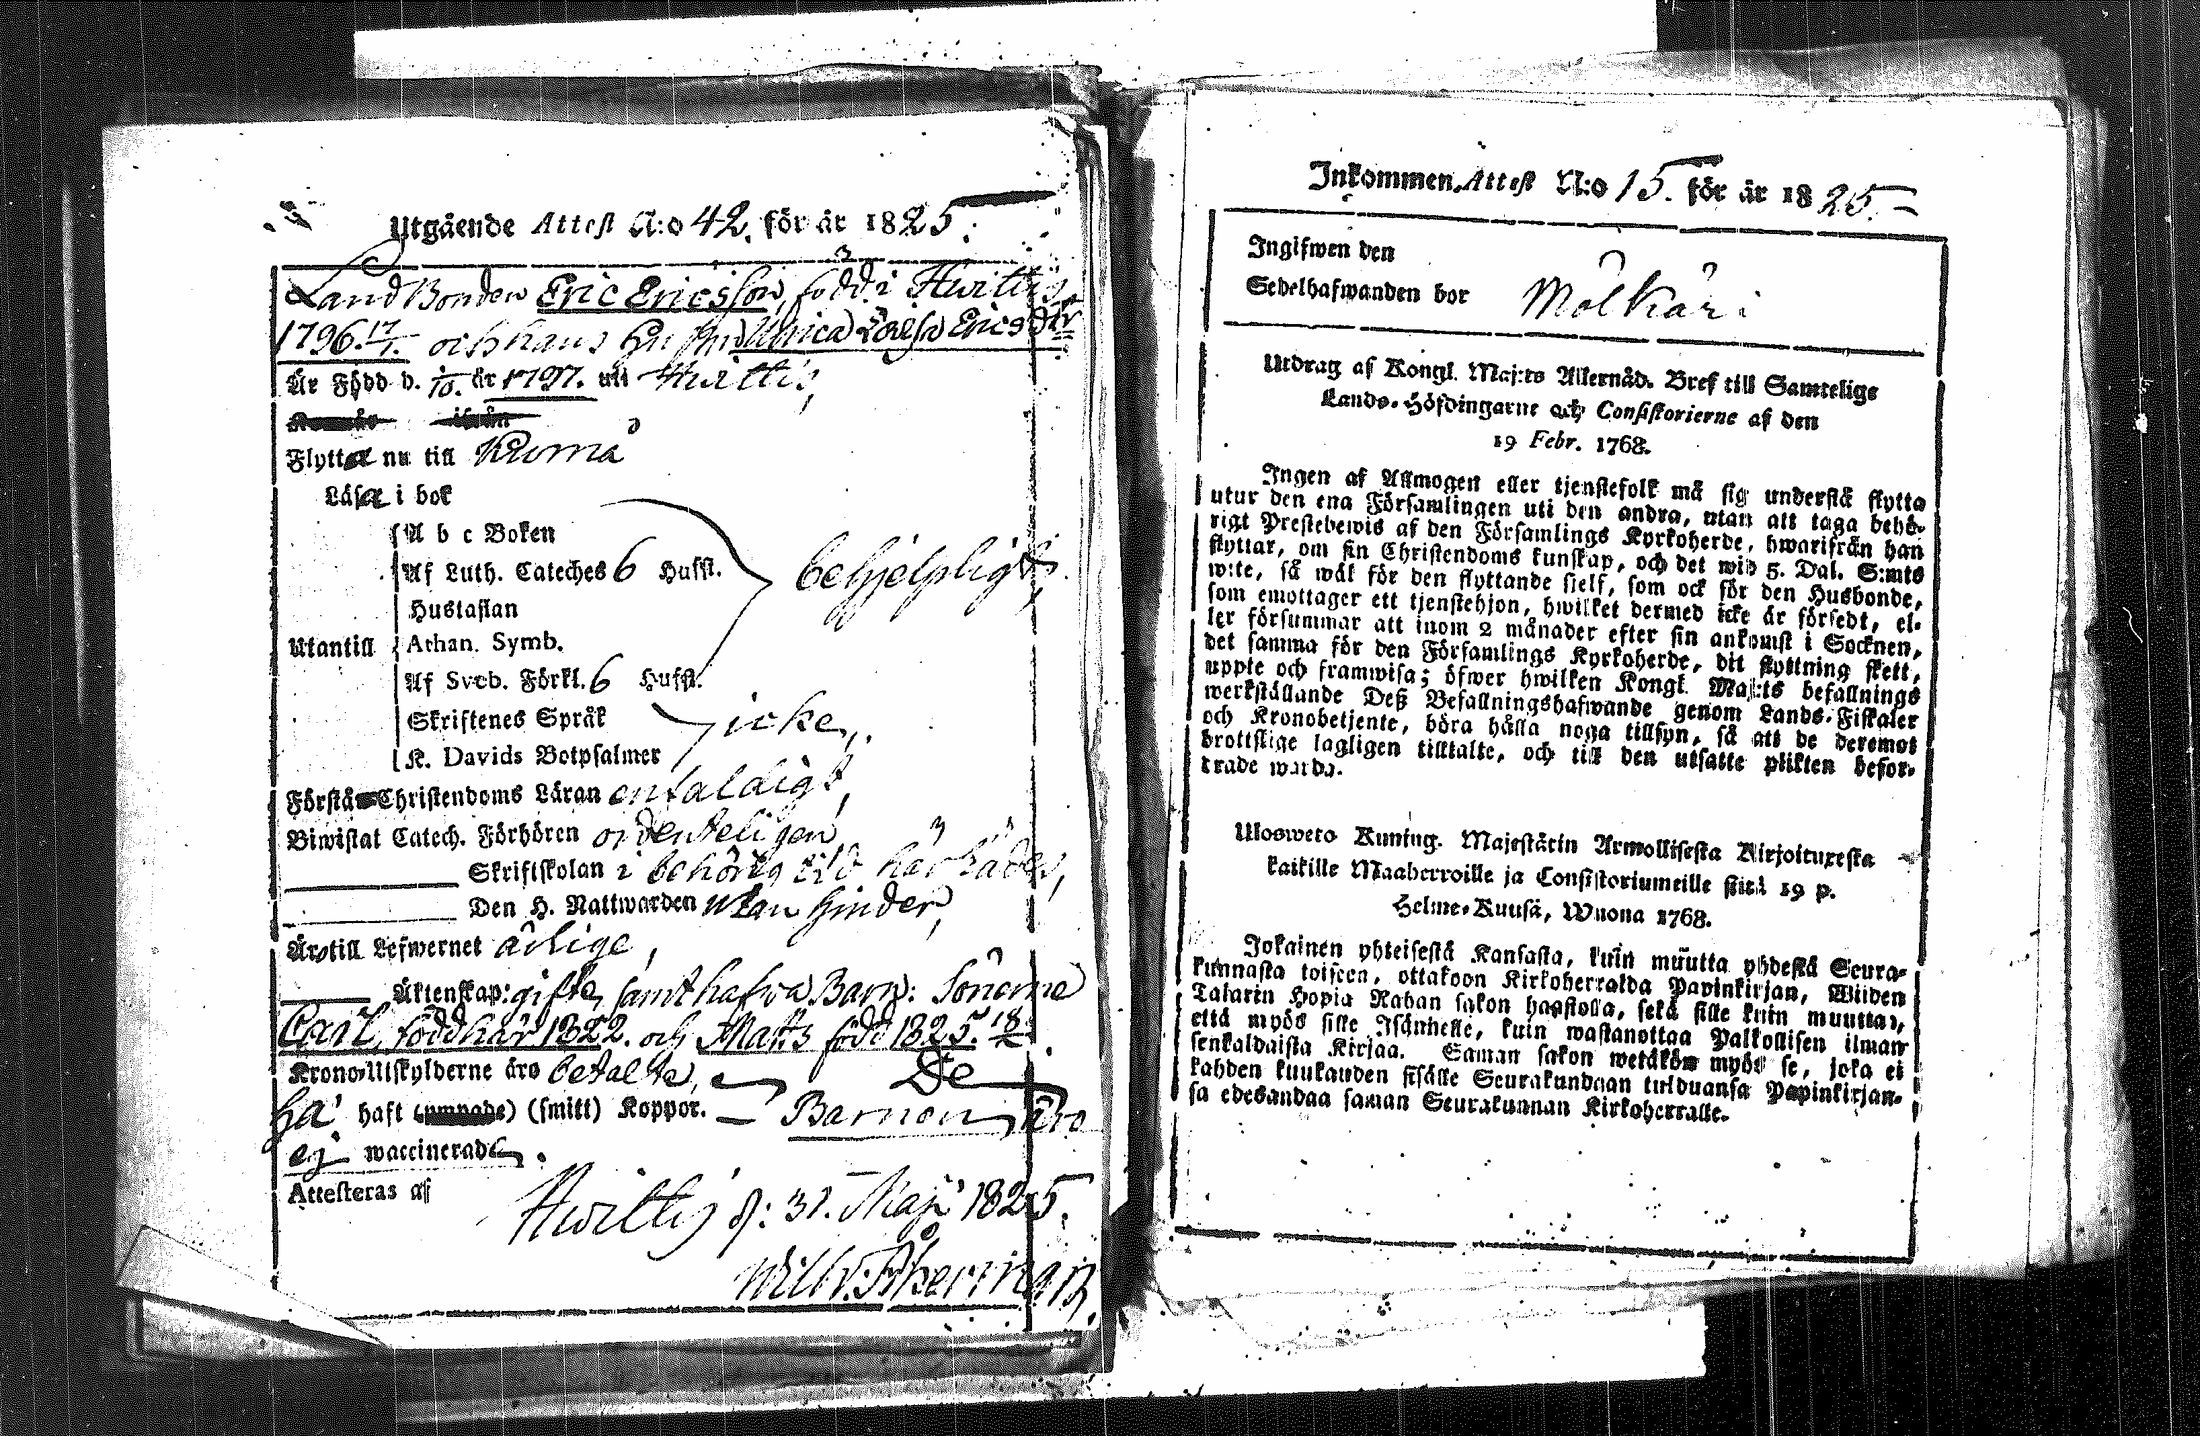 Utgående Attest N:o 42. för år 1825.
Landbonden Eric Ericsson, född i Hwittis
1796. 17/1. och hans hustru Ulrica Ericsdtr
Är Född d. år 1797. uti Hwittis,
Flytta nu till Kiuma
Läsa i bok
A b c Boken
Af Luth. Cateches 6 Hufst. behjelpligt,
Hustaflan
Utantill Athan. Symb.
Af Sveb. Förkl. 6 Hufst.
Skriftenes Språk icke,
K. Davids Botpsalmer
Förstå Christendoms Läran enfaldigt,
Biwistat Catech. Förhören ordenteligen,
Skriftskolan i behörig tid härstädes,
Den H. Nattwarden utan hinder,
Äro till Lefwernet ärlige,
Äktenskap: gifte, samt hafva Barn: Sönerne
Carl, född här 1822. och Matts född 1825. 18/2
Krono-Utskylderne äro betalte, De
ha haft (smitt) Koppor. — Barnen äro
ej waccinerade.
Attesteras af
Hwittis d: 31. Maji 1825.
Wilh. Åkerman.
Inkommen Attest N:o 15. för år 1825.
Ingifwen den
Sedelhafwanden bor Mölkäri
Utdrag af Kongl. Maj:ts Allernåd. Bref till Samtelige
Lands-Höfdingarne och Consistorierne af den
19 Febr. 1768.
Ingen af Allmogen eller tjenstefolk må sig understå flytta
utur den ena Församlingen uti den andra, utan att taga behö-
rigt Prestebewis af den Församlings Kyrkoherde, hwarifrån han
flyttar, om sin Christendoms kunskap, och det wid 5. Dal. S:mts
wite, så wäl för den flyttande sjelf, som ock för den Husbonde,
som emottager ett tjenstehjon, hwilket dermed icke är försedt, el-
ler försummar att inom 2 månader efter sin ankomst i Socknen,
det samma för den Församlings Kyrkoherde, dit flyttning skett,
uppte och framwisa; öfwer hwilken Kongl. Maj:ts befallnings
werkställande Deß Befallningshafwande genom Lands-Fiskaler
och Kronobetjente, böra hålla noga tillsyn, så att de deremot
brottslige lagligen tilltalte, och till den utsatte plikten befor-
drade warda.
Ulosweto Kuning. Majestätin Armollisesta Kirjoituxesta
kaikille Maaherroille ja Consistoriumeille siitä 19 p.
Helme-Kuusa, Wuona 1768.
Jokainen yhteisestä Kansasta, kuin muutta yhdestä Seura-
kunnasta toiseen, ottakoon Kirkoherralda Papinkirjan, Wiiden
Talarin Hopia Rahan sakon haastolla, sekä sille kuin muuttaa,
että myös sille Isännelle, kuin wastanottaa Palkollisen ilman
senkaldaista Kirjaa. Saman sakon wetäkön myös se, joka ei
kahden kuukauden sisälle Seurakundaan tulduansa Papinkirjan-
sa edesandaa saman Seurakunnan Kirkoherralle.